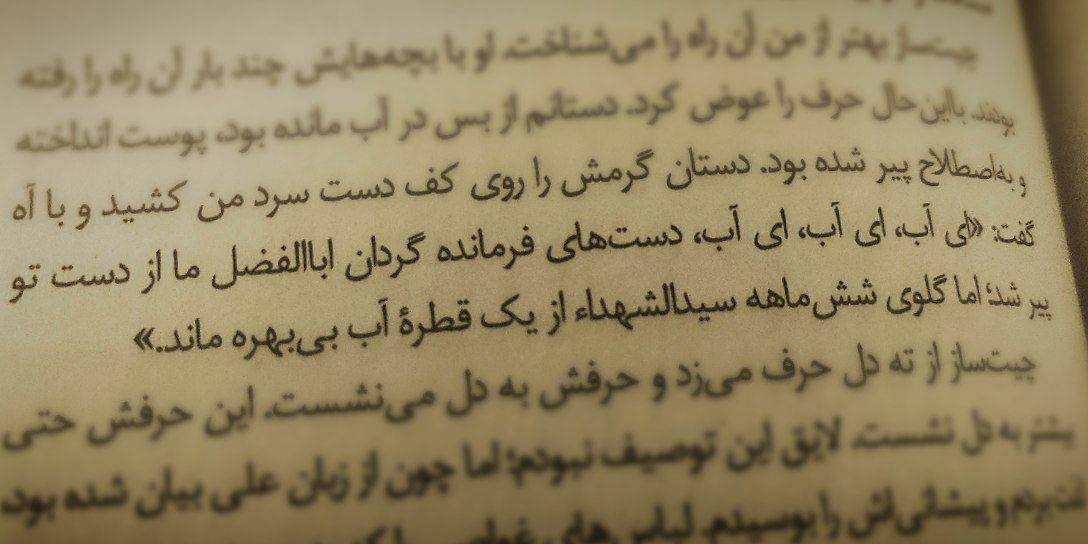 چیت‌ساز بهتر از من آن راه را می‌شناخت. او با بچه‌هایش چند بار آن راه را رفته
بودند. بااین‌حال حرف را عوض کرد. دستانم از بس در آب مانده بود، پوست انداخته
و به‌اصطلاح پیر شده بود. دستان گرمش را روی کف دست سرد من کشید و با آه
گفت: «ای آب، ای آب، ای آب، دست‌های فرمانده گردان اباالفضل ما از دست تو
پیر شد؛ اما گلوی شش‌ماهه سیدالشهداء از یک قطرهٔ آب بی‌بهره ماند.»
چیت‌ساز از ته دل حرف می‌زد و حرفش به دل می‌نشست. این حرفش حتی
بیشتر به دل نشست. لایق این توصیف نبودم؛ اما چون از زبان علی بیان شده بود،
بردم و پیشانی‌اش را بوسیدم. لباس‌های غواصی